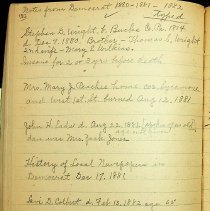 Notes from Democrat 1880-1881-1882
Copied
Stephen D. Wright, b. Bucks Co. Pa. 1814
d. Dec. 7, 1880. Brother - Thomas C. Wright
and wife - Mary E. Wilkins.
Insane for 2 or 3 yrs before death
Mrs. Mary J. home cor. Sycamore
and West 1st. St. burned Aug 12, 1881
John H. d. Aug 22, 1881
dau was Mrs. Jack Jones
History of Local Newspapers in
Democrat Dec 17, 1881
Levi D. Colbert d. Feb 13, 1882 age 65